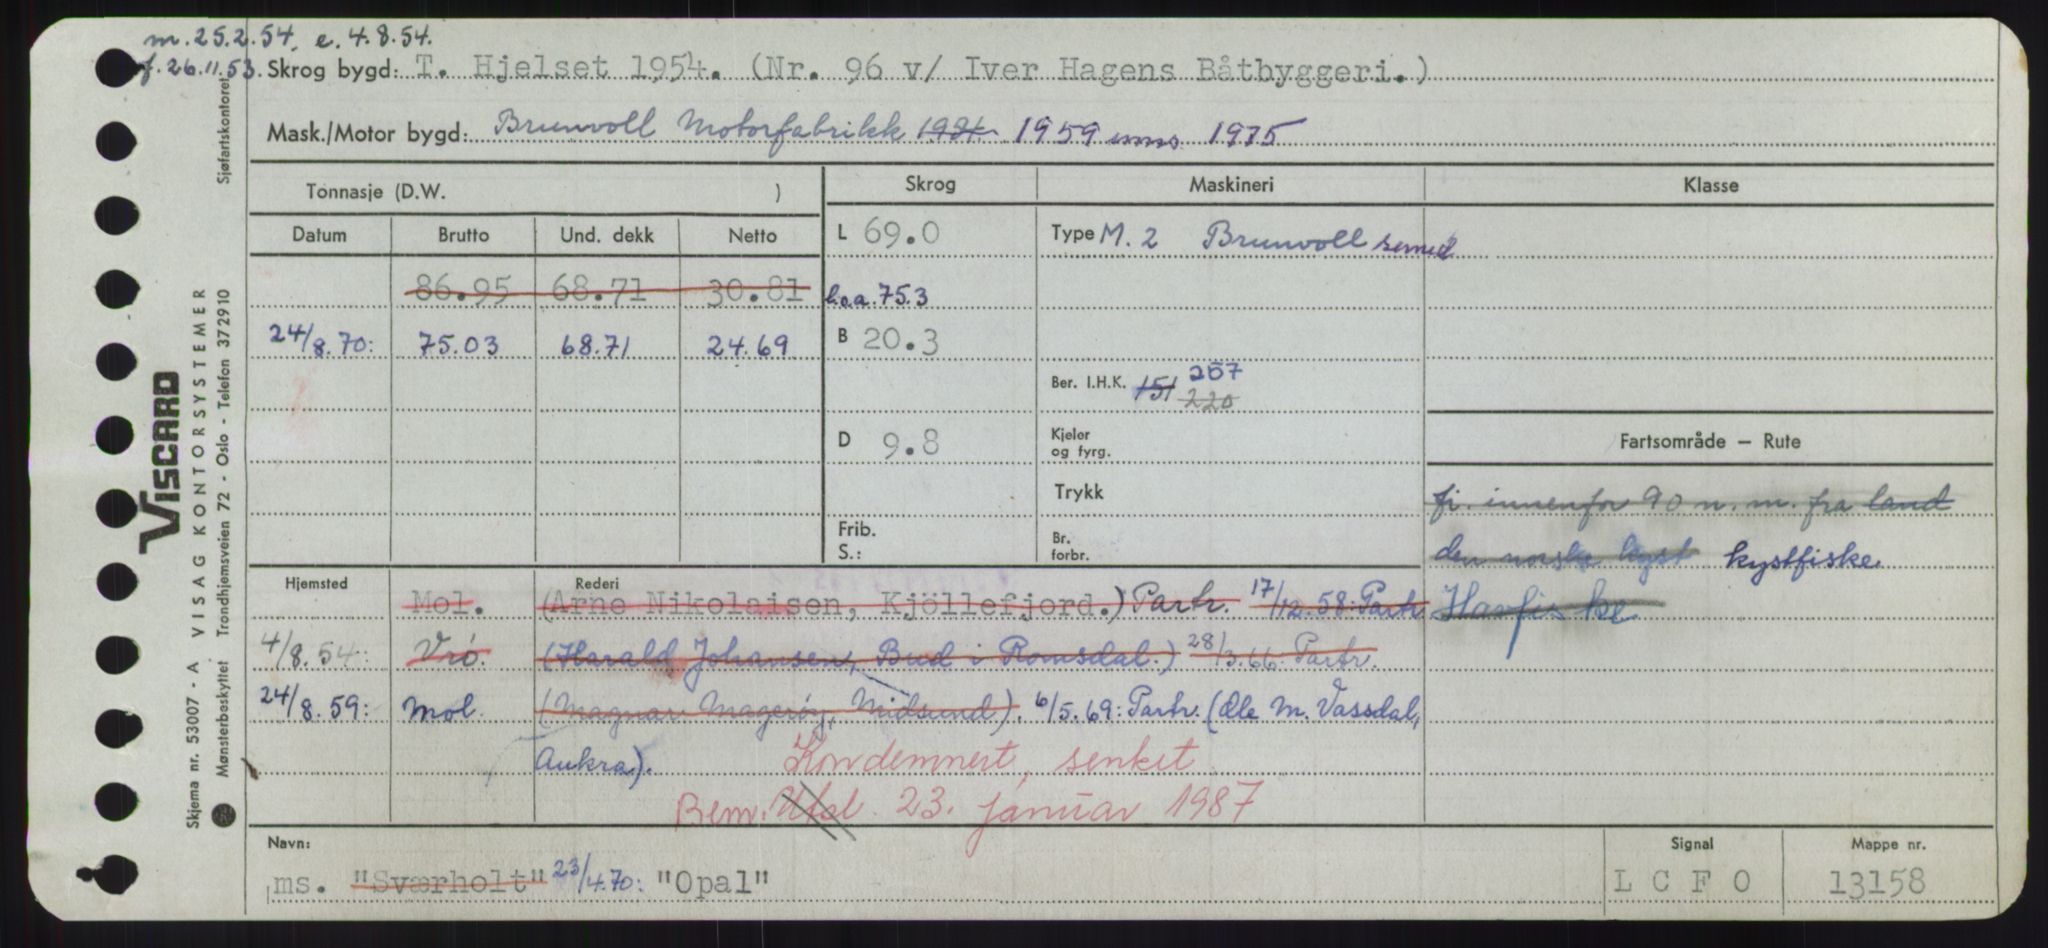 m. 25.2.54. e. 4.8.54.
f. 26.11.53. Skrog bygd: T. Hjelset 1954. (Nr. 96 v/ Iver Hagens Båtbyggeri.)
Mask./Motor bygd: Brunvoll Motorfabrikk 1959 1975
Tonnasje (D.W. ) Skrog Maskineri Klasse
Datum Brutto Und. dekk Netto L 69.0 Type M. 2 Brunvoll semid
86.95 68.71 30.81 l.o.a. 75.3
24/8.70: 75.03 68.71 24.69 B 20.3
Ber. I.H.K. 151 257
220
D 9.8 Kjeler
og fyrg.
Fartsområde — Rute
Trykk
fi. innenfor 90 n. m. fra land
Frib.
S.:
Br.
forbr.
den norske kyst kystfiske.
Hjemsted Rederi
Mol. (Arne Nikolaisen, Kjöllefjord.) Partr. 17/12.58: Partr. Havfiske
4/8.54: Vrö. (Harald Johansen, Bud i Romsdal.) 28/3.66: Partr.
24/8.59: Mol. (Magnar Magerøy, Midsund). 6/5.69: Partr. (Ole M. Vassdal,
Aukra). Kondemnert, senket
Bem. Utsl. 23. januar 1987
Navn: Signal Mappe nr.
ms. "Sværholt" 23/4.70: "Opal" L C F O 13158
Sjøfartskontoret
VISCARD
VISAG KONTORSYSTEMER
Skjema nr. 53007 - A
Mønsterbeskyttet Trondhjemsveien 72 - Oslo - Telefon 372910